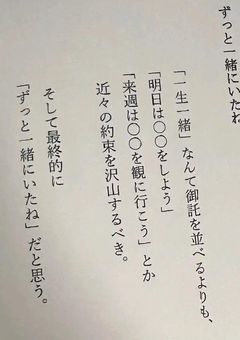 ずっと一緒にいたね
「一生一緒」なんて御託を並べるよりも、
「明日は〇〇をしよう」
「来週は〇〇を観に行こう」とか
近々の約束を沢山するべき。
そして最終的に
「ずっと一緒にいたね」だと思う。